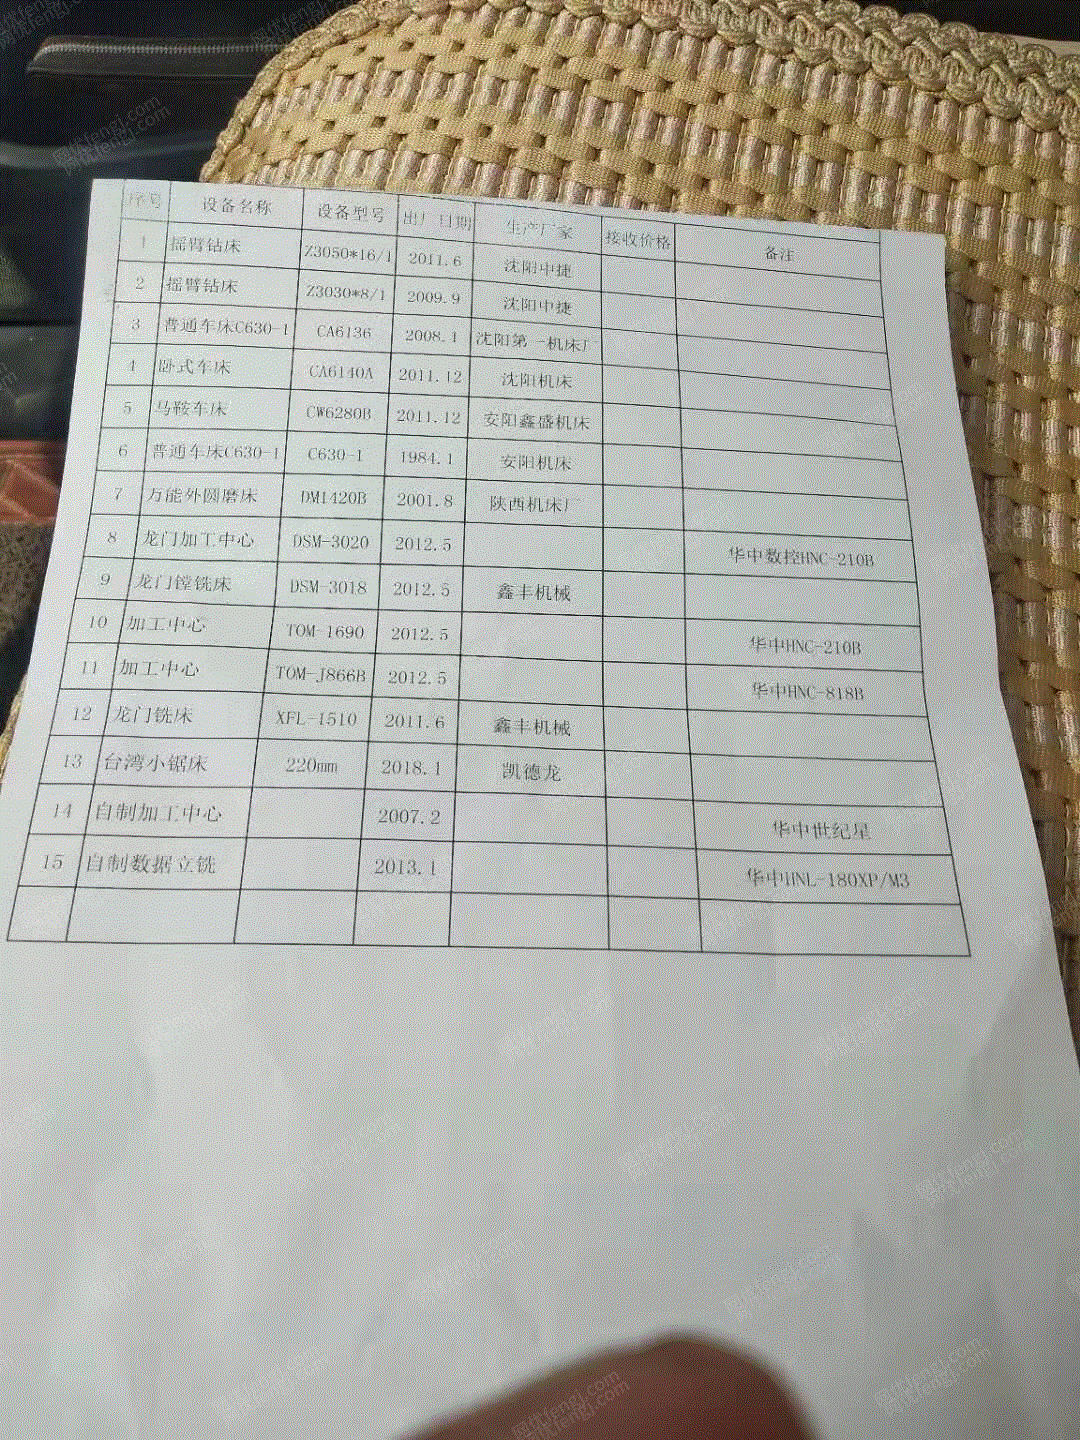 序号 设备名称 设备型号 出厂日期 生产厂家 接收价格 备注
1 摇臂钻床 Z3050*16/1 2011.6 沈阳中捷
2 摇臂钻床 Z3030*8/1 2009.9 沈阳中捷
3 普通车床C630-1 CA6136 2008.1 沈阳第一机床厂
4 卧式车床 CA6140A 2011.12 沈阳机床
5 马鞍车床 CW6280B 2011.12 安阳鑫盛机床
6 普通车床C630-1 C630-1 1984.1 安阳机床
7 万能外圆磨床 DM1420B 2001.8 陕西机床厂
8 龙门加工中心 DSM-3020 2012.5 华中数控HNC-210B
9 龙门镗铣床 DSM-3018 2012.5 鑫丰机械
10 加工中心 TOM-1690 2012.5 华中HNC-210B
11 加工中心 TOM-J866B 2012.5 华中HNC-818B
12 龙门铣床 XFL-1510 2011.6 鑫丰机械
13 台湾小锯床 220mm 2018.1 凯德龙
14 自制加工中心 2007.2 华中世纪星
15 自制数据立铣 2013.1 华中HNL-180XP/M3